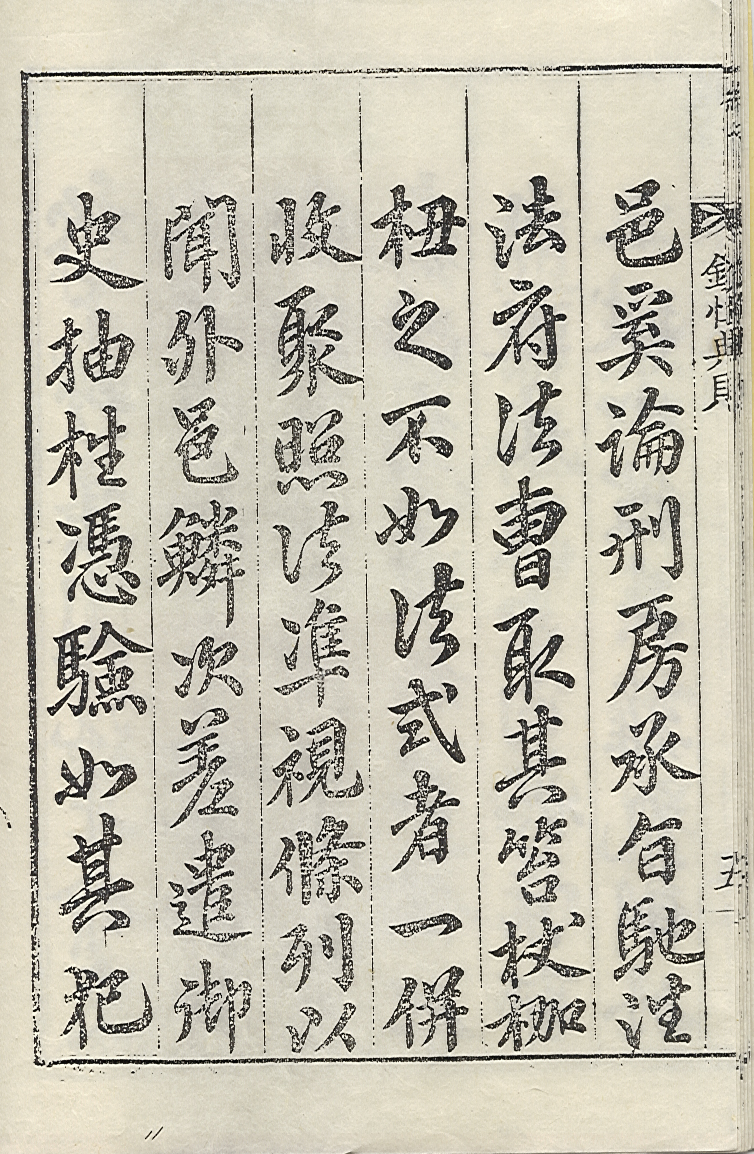 欽恤典則 五
邑奚論刑房承旨馳往
法府法曹取其笞杖枷
杻之不如法式者一併
收聚照法準視條列以
聞外邑鱗次差遣御
史抽栍憑驗如其犯
11